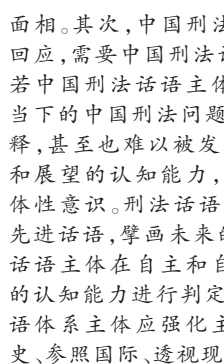 面相。其次,中国刑法
回应,需要中国刑法话
若中国刑法话语主体
当下的中国刑法问题
释,甚至也难以被发
和展望的认知能力,
体性意识。刑法话语
先进话语,擘画未来的
话语主体在自主和自
的认知能力进行判定
语体系主体应强化主
史、参照国际、透视现